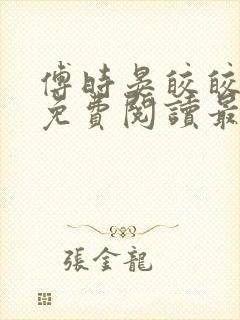 傅時晏皎皎
免費閱讀最
張金龍